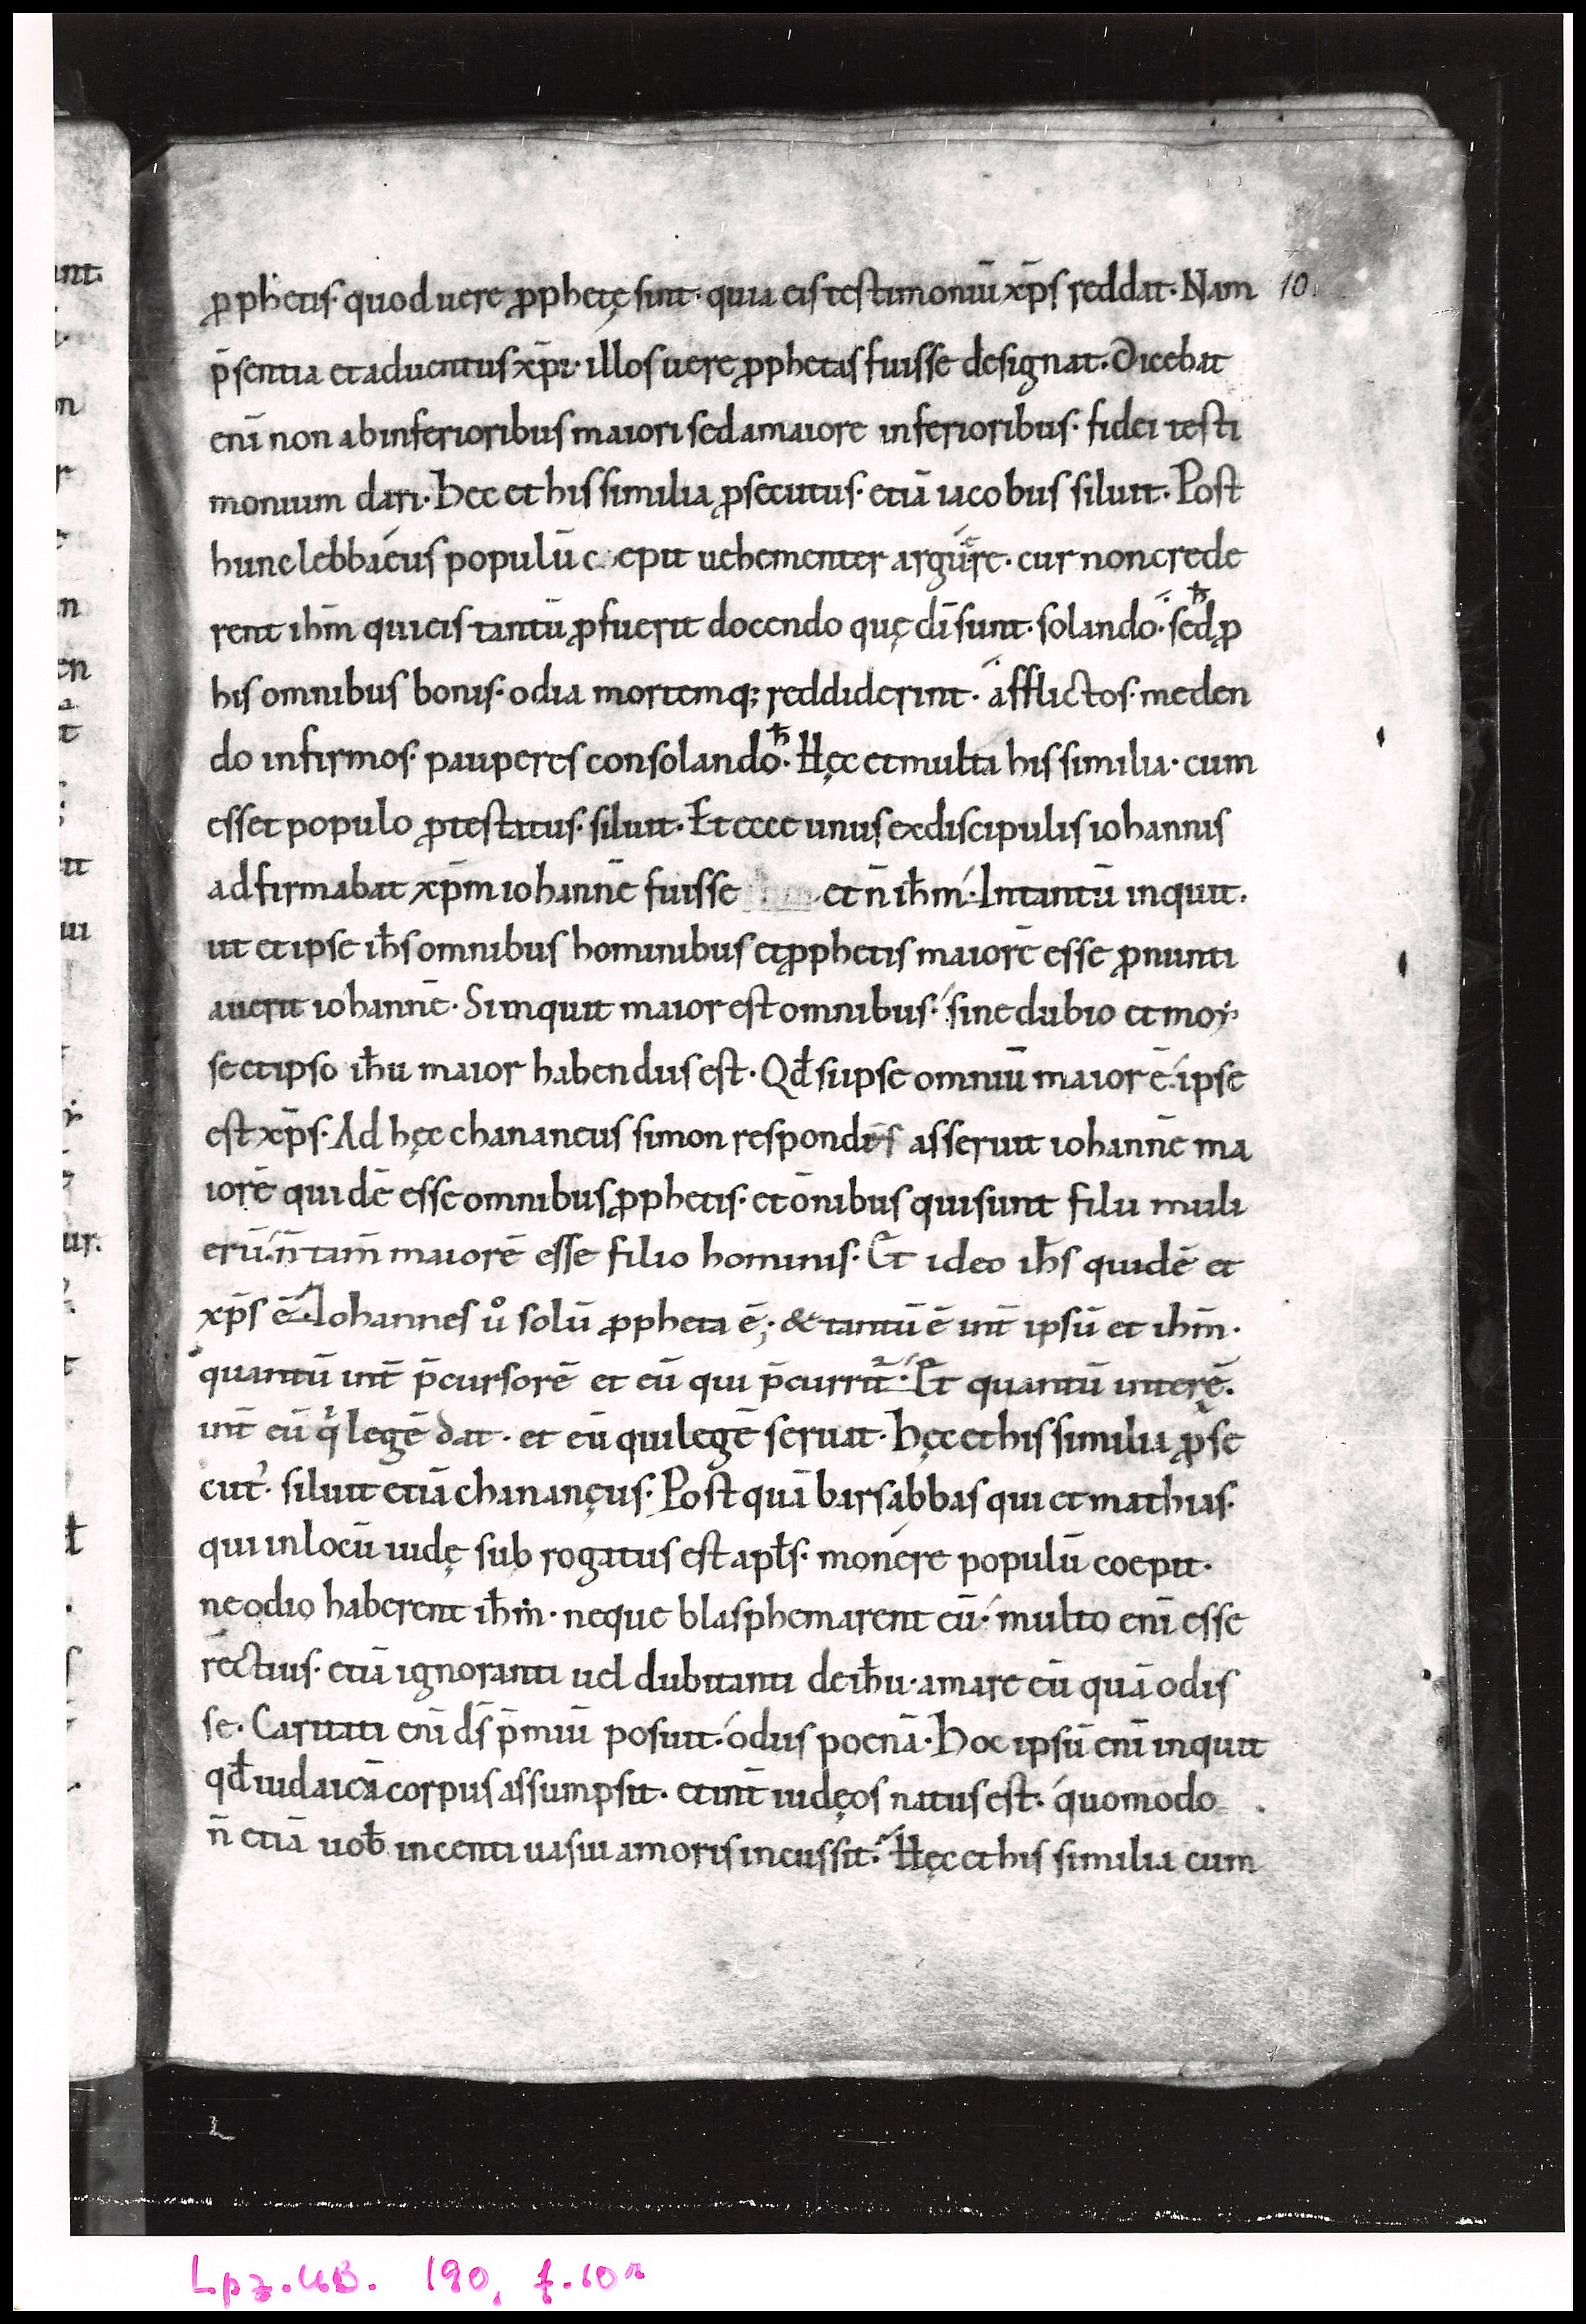 ꝓphetis· quod uere ꝓphetę sint· quia eis testimoniū xp̄s reddat· Nam 10.
p̄sentia et aduentus xp̄i· illos uere ꝓphetas fuisse designat· Dicebat
enī non ab inferioribus maiori sed a maiore inferioribus· fidei testi
monium dari· Hec et his similia ꝓsecutus· etiā iacobus siluit· Post
hunc lebbaeus populū c epit uehementer arguere· cur non crede
rent ihm̄ qui eis tantū ꝓfuerit docendo quę dī sunt· solando· sed ꝓ
his omnibus bonis· odia mortemq; reddiderint· afflictos· meden
do infirmos· pauperes consolando· Hęc et multa his similia· cum
esset populo ꝓtestatus· siluit· Et ecce unus ex discipulis iohannis
adfirmabat xp̄m iohannē fuisse et n̄ ihm̄· Intantū inquit·
ut et ipse ihs̄ omnibus hominibus et ꝓphetis maiorē esse ꝓnunti
auerit iohannē· Si inquit maior est omnibus· sine dubio et moy
se et ipso ihu maior habendus est· Qđ si ipse omniū maior ē· ipse
est xp̄s· Ad hęc chananeus simon respondēs asseruit iohannē ma
iorē quidē esse omnibus ꝓphetis· et ōnibus qui sunt filii muli
erū· n̄ tam̄ maiorē esse filio hominis· Et ideo ihs̄ quidē et
xp̄s ē· Iohannes ů solū ꝓpheta ē; & tantū ē int̄ ipsū et ihm̄·
quantū int̄ p̄cursorē et eū qui p̄currit̄· Et quantū interē·
int̄ eū q̇ legē dat· et eū qui legē seruat· Hęc et his similia ꝓse
cut᾽· siluit etiā chananęus· Post quā barsabbas qui et mathias·
qui in locū iudę subrogatus est apłs· monere populū coepit·
ne odio haberent ihm̄· neque blasphemarent eū· multo enī esse
rectius· etiā ignoranti uel dubitanti de ihu· amare eū quā odis
se· Caritati enī ds̄ p̄miū posuit· odiis poenā· Hoc ipsū enī inquit
qđ iudaicā corpus assumpsit· et int̄ iudęos natus est· quomodo
n̄ etiā uob̄ incentiua sui amoris incussit· Hęc et his similia cum
Lpz. UB. 190, f. 10r